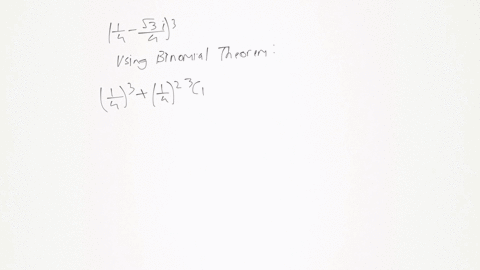 (1/4 - √3/4 i)³
Using Binomial Theorem:
(1/4)³ + (1/4)² ³C₁